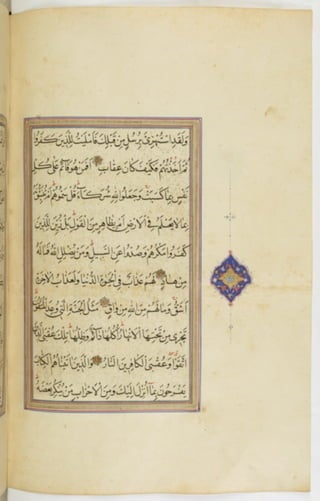 وَلَقَدِ اسْتُهْزِئَ بِرُسُلٍ مِنْ قَبْلِكَ فَاَمْلَيْتُ لِلَّذِينَ كَفَرُوا
ثُمَّ اَخَذْتُهُمْ فَكَيْفَ كَانَ عِقَابِ اَفَمَنْ هُوَ قَائِمٌ عَلَى كُلِّ
نَفْسٍ بِمَا كَسَبَتْ وَجَعَلُوا لِلَّهِ شُرَكَاءَ قُلْ سَمُّوهُمْ اَمْ تُنَبِّئُونَهُ
بِمَا لَا يَعْلَمُ فِي الْاَرْضِ اَمْ بِظَاهِرٍ مِنَ الْقَوْلِ بَلْ زُيِّنَ لِلَّذِينَ
كَفَرُوا مَكْرُهُمْ وَصُدُّوا عَنِ السَّبِيلِ وَمَنْ يُضْلِلِ اللَّهُ فَمَا لَهُ
مِنْ هَادٍ لَهُمْ عَذَابٌ فِي الْحَيٰوةِ الدُّنْيَا وَلَعَذَابُ الْاٰخِرَةِ
اَشَقُّ وَمَا لَهُمْ مِنَ اللَّهِ مِنْ وَاقٍ مَثَلُ الْجَنَّةِ الَّتِي وُعِدَ الْمُتَّقُونَ
تَجْرِي مِنْ تَحْتِهَا الْاَنْهَارُ اُكُلُهَا دَائِمٌ وَظِلُّهَا تِلْكَ عُقْبَى الَّذِينَ
اتَّقَوْا وَعُقْبَى الْكَافِرِينَ النَّارُ وَالَّذِينَ اٰتَيْنَاهُمُ الْكِتَابَ
يَفْرَحُونَ بِمَا اُنْزِلَ اِلَيْكَ وَمِنَ الْاَحْزَابِ مَنْ يُنْكِرُ بَعْضَهُ